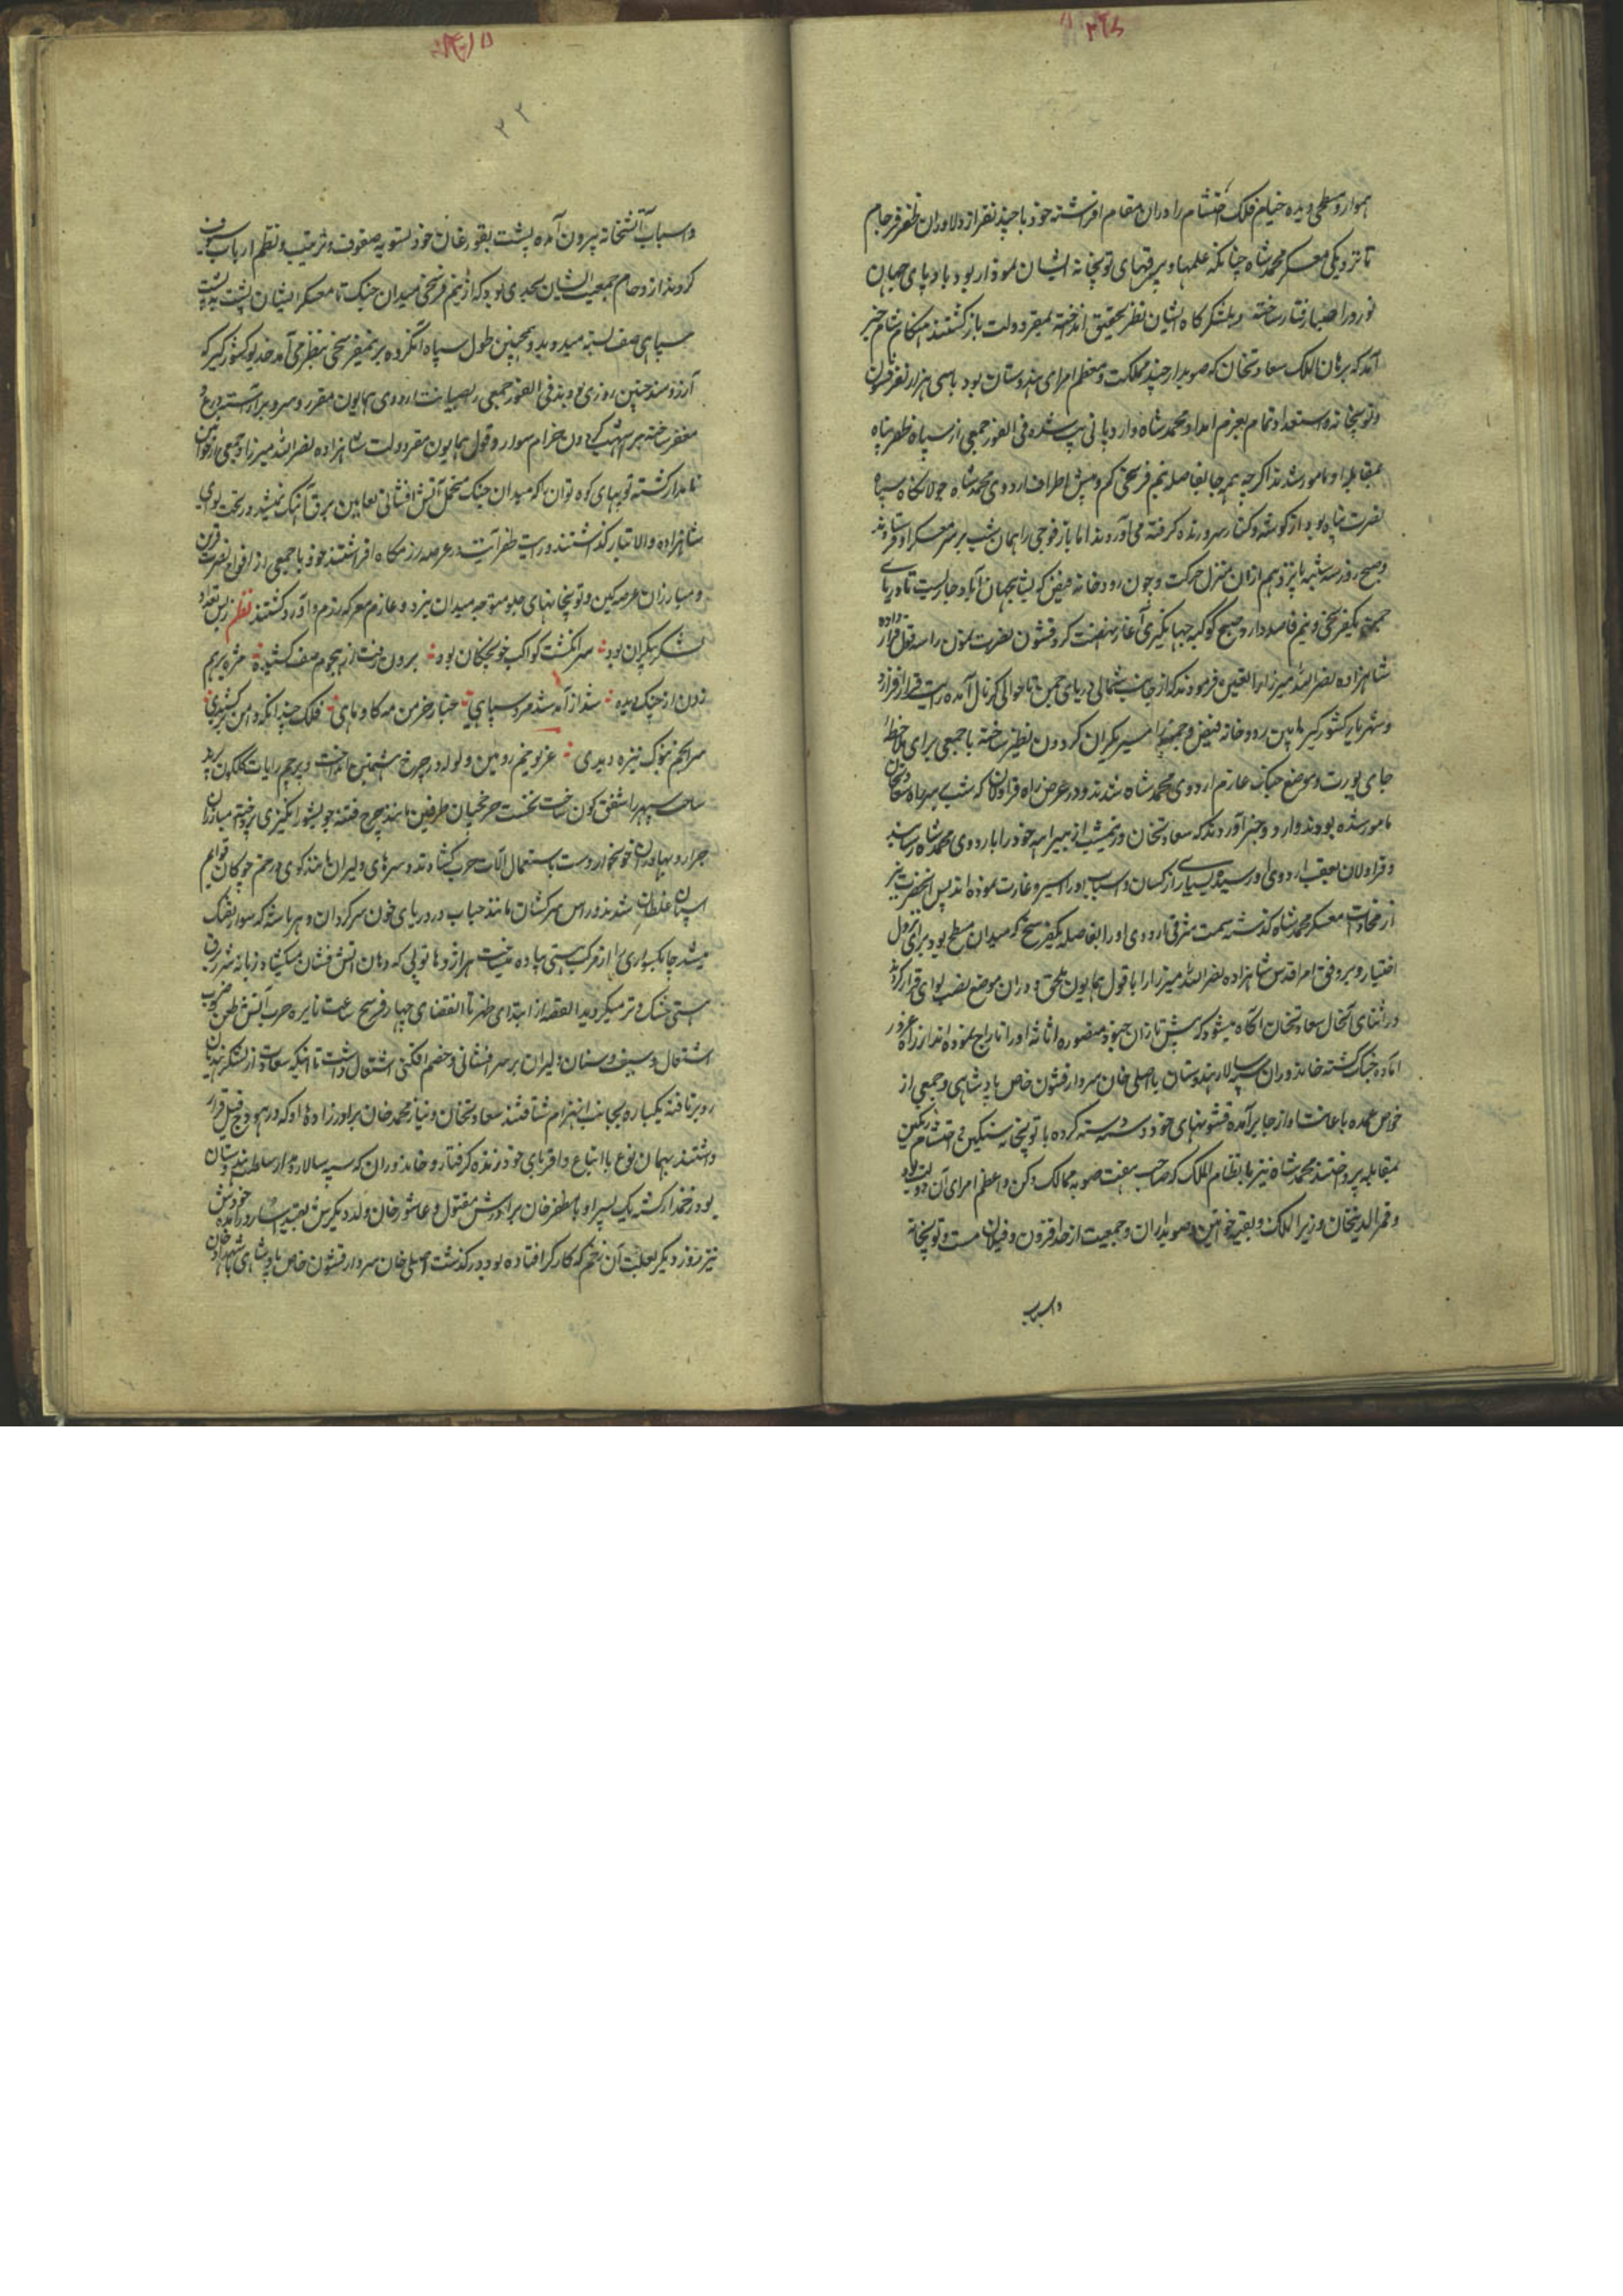 هموار و مسطحی دیده خیام فلک احتشام را در ان مقام افراشته خود با چند نفر از دلاوران ظفر فرجام
تا نزدیکی معسکر محمدشاه چنانکه علمها و بیرقهای توپخانه ایشان نمودار بود باد پای جهان
نورد را صبا رفتار ساخته و بلشکرکاه ایشان نظر تحقیق انداخته بمقر دولت باز کشتند هنکام شام خبر
آمد که برهان الملک سعادتخان که صوبدار چند مملکت و معظم امرای هندوستان بود با سی هزار نفر قشون
و توپخانه و استعداد تمام بعزم امداد محمدشاه وارد پانی پت شده فی الفور جمعی از سپاه ظفر پناه
بمقابله او مامور شدند اکرچه همه جا بفاصله نیم فرسخی کم و بیش اطراف اردوی محمدشاه جولانکاه سپاه
نصرت پناه بود از کوشه و کنار سر و زنده کرفته می آوردند اما باز فوجی را همان شب بر سر معسکر او فرستادند
و صبح روز سه شنبه پانزدهم ازان منزل حرکت و چون رودخانه فیض که بشاهجهان آباد جاریست تا دریای
جمنه یکفرسخی و نیم فاصله دارد صبح کوکبه جهانکیری آغاز نهضت کرد قشون نصرت نمون را سه قول قرار داده
شاهزاده نصرالله میرزا را تعیین فرمودند که از جانب شمالی دریای جمن تا حوالی کرنال آمده رایت قرار افرازد
و شهریار کشورکیر ما بین رودخانه فیض و جمنه را مسیر یکران کردون نظیر ساخته با جمعی برای ملاحظه
جای یورت و موضع جنک عازم اردوی محمدشاه شدند و در عرض راه قراولان که شب بر سر راه سعادتخان
مامور شده بودند وارد و خبر آوردند که سعادتخان در نیمشب از بیراهه خود را باردوی محمدشاه رسانید
و قراولان بعقب اردوی او رسیده بسیاری از کسان و اسباب او را اسیر و غارت نموده اند پس انحضرت نیز
از محاذات معسکر محمدشاه کذشته سمت شرقی اردوی او را بفاصله یکفرسخ که میدان مسطح بود برای نزول
اختیار و بر وفق امر اقدس شاهزاده نصرالله میرزا را با قول همایون ملحق و دران موضع نصب لوای قرار کردند
در اثنای آنحال سعادتخان آکاه میشود که پیش تازان جنود منصوره اثاثه او را تاراج نموده اند از راه غرور
آماده جنک کشته خاندوران سپه سالار هندوستان با اصلی خان سردار قشون خاص پادشاهی و جمعی از
خواص عمده باعانت او از جا برآمده قشونهای خود دسته دسته کرده با توپخانه سنکین و احتشام رنکین
بمقابله پرداختند محمدشاه نیز با نظام الملک که صاحب هفت صوبه ممالک دکن و اعظم امرای آن دولت بود
و قمرالدینخان وزیرالملک و بقیه خواتین و صوبداران و جمعیت از حد افزون و فیلان مست و توپخانه
و اسباب
۲۲
و اسباب آتشخانه بیرون آمده پشت بقورغان خود بتسویه صفوف و ترتیب و نظم ارباب سیوف
کردند ازدحام جمعیت ایشان بحدی بود که از نیم فرسخی میدان جنک تا معسکر ایشان پشت به پشت
سپاهی صف بسته میدویدند و همچنین طول سپاه آنکروه بر نیمفرسخی بنظر می آمد خدیو کشورکیر که
آرزومند چنین روزی بودند فی الفور جمعی را بصیانت اردوی همایون مقرر و سر و بر آراسته درع و
مغفر ساخته بر سمند کردون خرام سوار و قول همایون بمقر دولت شاهزاده نصرالله میرزا و جمعی از خوانین
نامدار کشته توپهای کوه توان را که میدان جنک متحمل آتش افشانی ثعابین برق آهنک نمیشد در تحت لوای
شاهزاده والا تبار کذاشتند و رایت ظفر آیت در عرصه رزمکاه افراشتند خود با جمعی از افواج نصرت قرین
و مبارزان عرصه کین و توپخانهای جلو متوجه میدان نبرد و عازم معرکه رزم و آورد کشتند نظم ز بس تعداد
لشکر بیکران بود سرانکشت کواکب خونچکان بود برون رفت از هجوم صف کشیده مژه برهم
زدن از جنک دیده
سرانجم بنوک نیزه دیدی غریو خم رویین ولوله در چرخ هشتمین انداخت و پرچم رایات کلکون پرند
ساحت سپهر را شفق کون ساخت نخست چرخچیان طرفین مانند چرخ فتنه جو بشورانکیزی پرداخته مبارزان
جرار و بهادران خونخوار دست باستعمال آلات حرب کشادند و سرهای دلیران مانند کوی در خم چوکان قوایم
اسپان غلطان شدند و رؤس سرکشان مانند حباب در دریای خون سرکردان
میشد چابکسواری را از مرکب هستی پیاده میساخت هر اژدها توپی که دهان آتش فشان میکشاد زبانه شررش برق
هستی خشک و تر میکردید القصه از ابتدای ظهر تا انقضای چهار و پنج ساعت نایره حرب و آتش طعن و ضرب
اشتعال و سیف و سنان دلیران بر سرافشانی و خصم افکنی اشتغال داشت تا آنکه سعادت از لشکر هندیان
رو برتافته یکباره بجانب انهزام شتافتند سعادتخان و نثار محمدخان برادرزاده او که در هودج فیل قرار
داشتند بهمان نوع با اتباع و اقربای خود زنده کرفتار و خاندوران که سپه سالار و مدار سلطنت هندوستان
بود زخمدار کشته یک پسر او با مظفرخان برادرش مقتول و عاشورخان ولد دیکرش بقید اسار درآمده خودش
نیز روز دیکر بعلت آن زخم که کارکر افتاده بود درکذشت اصلی خان سردار قشون خاص پادشاهی با شهدادخان